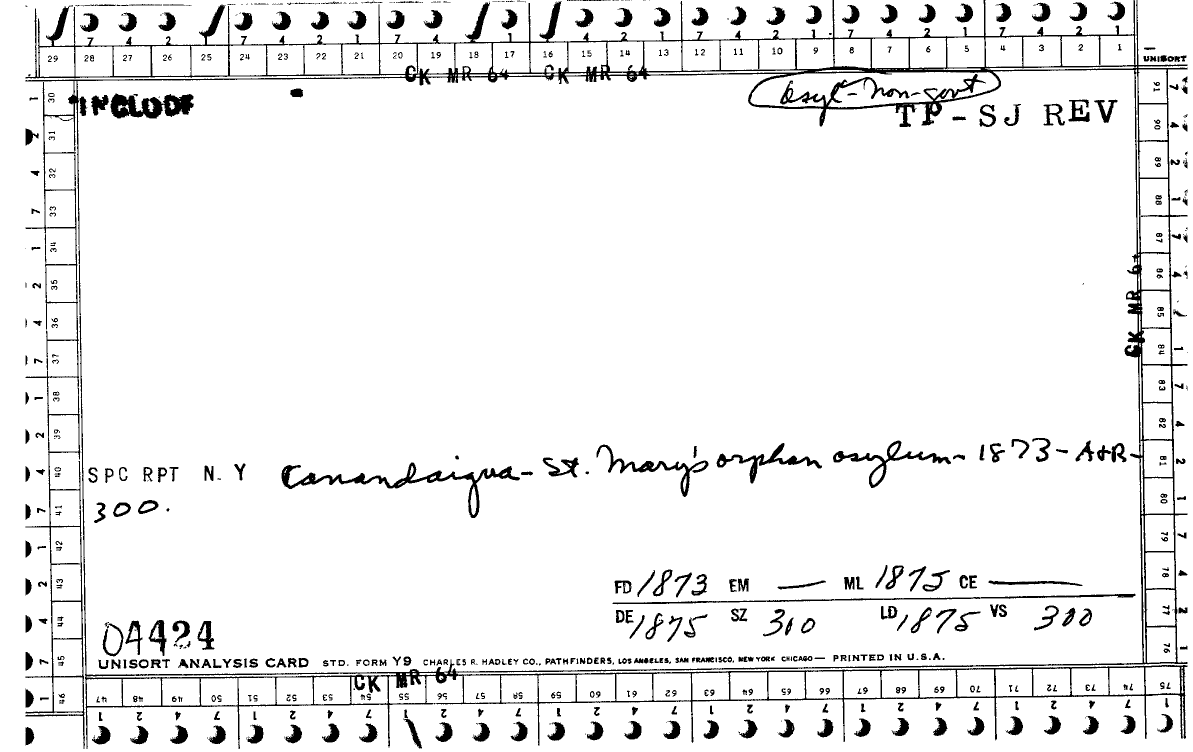 7 4 2 1 7 4 2 1 7 4 2 1 7 4 2 1 7 4 2 1 7 4 2 1
29 28 27 26 25 24 23 22 21 20 19 18 17 16 15 14 13 12 11 10 9 8 7 6 5 4 3 2 1
UNISORT
CK MR 64 CK MR 64
asyl-non-govt
INCLUDE
TP-SJ REV
30 31 32 33 34 35 36 37 38 39 40 41 42 43 44 45 46
91 90 89 88 87 86 85 84 83 82 81 80 79 78 77 76 75
CK MR 6
SPC RPT N.Y Canandaigua - St. Mary's orphan asylum - 1873 - A&R -
300.
FD 1873 EM — ML 1875 CE —
DE 1875 SZ 300 LD 1875 VS 300
04424
UNISORT ANALYSIS CARD STD. FORM Y9 CHARLES R. HADLEY CO., PATHFINDERS, LOS ANGELES, SAN FRANCISCO, NEW YORK CHICAGO — PRINTED IN U.S.A.
CK MR 64
47 48 49 50 51 52 53 54 55 56 57 58 59 60 61 62 63 64 65 66 67 68 69 70 71 72 73 74
1 2 4 7 1 2 4 7 1 2 4 7 1 2 4 7 1 2 4 7 1 2 4 7 1 2 4 7